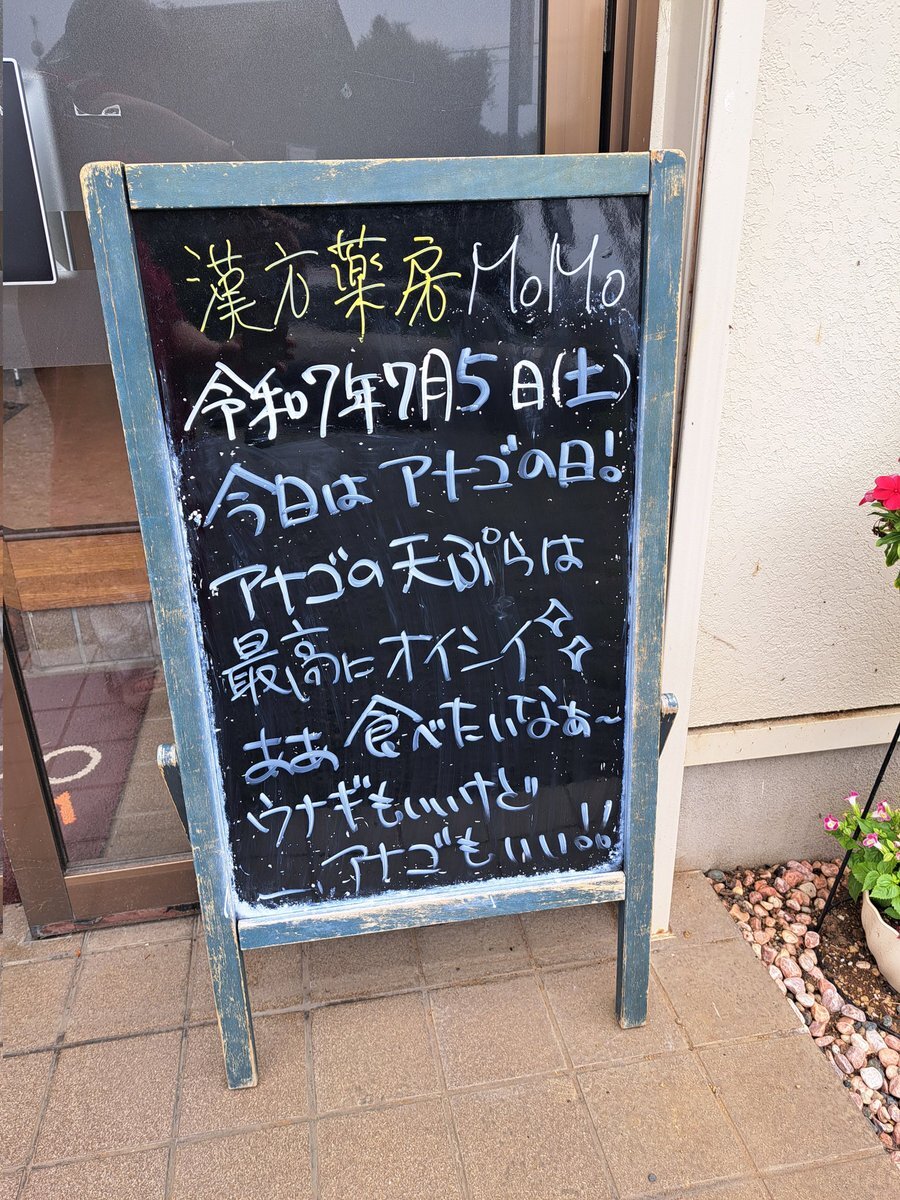 漢方薬房 MoMo
令和7年7月5日(土)
今日は アナゴの日!
アナゴの天ぷらは
最高にオイシイ✨
ああ 食べたいなぁ~
ウナギもいいけど
アナゴもいい!!